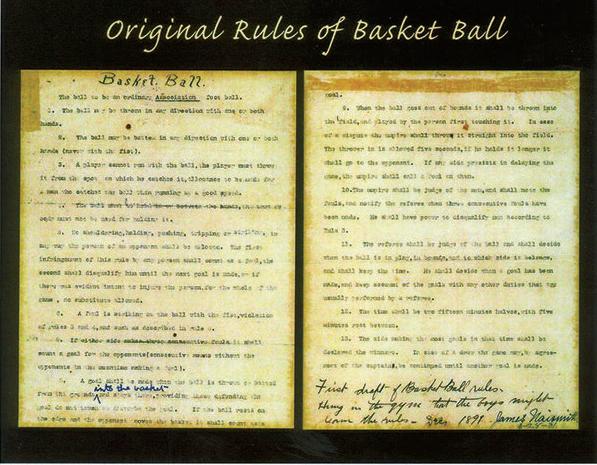 Original Rules of Basket Ball
Basket Ball.
The ball to be an ordinary Association foot ball.
1. The ball may be thrown in any direction with one or both
hands.
2. The ball may be batted in any direction with one or both
hands (never with the fist).
3. A player cannot run with the ball, the player must throw
it from the spot on which he catches it, allowance to be made for
a man who catches the ball when running at a good speed.
4. The ball must be held the hands, the arms or
body must not be used for holding it.
5. No shouldering, holding, pushing, tripping or striking, in
any way the person of an opponent shall be allowed. The first
infringement of this rule by any person shall count as a foul, the
second shall disqualify him until the next goal is made, or if
there was evident intent to injure the person, for the whole of the
game, no substitute allowed.
6. A foul is striking at the ball with the fist, violation
of rules 3 and 4, and such as described in rule 5.
7. If either side makes three consecutive fouls it shall
count a goal for the opponents (consecutive means without the
opponents in the meantime making a foul).
8. A goal shall be made when the ball is thrown or batted
into the basket
from the grounds and stays there, providing those defending the
goal do not touch or disturb the goal. If the ball rests on
the edge and the opponent moves the basket it shall count as a
goal.
9. When the ball goes out of bounds it shall be thrown into
the field, and played by the person first touching it. In case
of a dispute the umpire shall throw it straight into the field.
The thrower in is allowed five seconds, if he holds it longer it
shall go to the opponent. If any side persists in delaying the
game, the umpire shall call a foul on them.
10. The umpire shall be judge of the men, and shall note the
fouls, and notify the referee when three consecutive fouls have
been made. He shall have power to disqualify men according to
Rule 5.
11. The referee shall be judge of the ball and shall decide
when the ball is in play, in bounds, and to which side it belongs,
and shall keep the time. He shall decide when a goal has been
made, and keep account of the goals with any other duties that are
usually performed by a referee.
12. The time shall be two fifteen minutes halves, with five
minutes rest between.
13. The side making the most goals in that time shall be
declared the winners. In case of a draw the game may, by agree-
ment of the captains, be continued until another goal is made.
First draft of Basket Ball rules.
Hung in the gym that the boys might
learn the rules - Dec. 1891 James Naismith